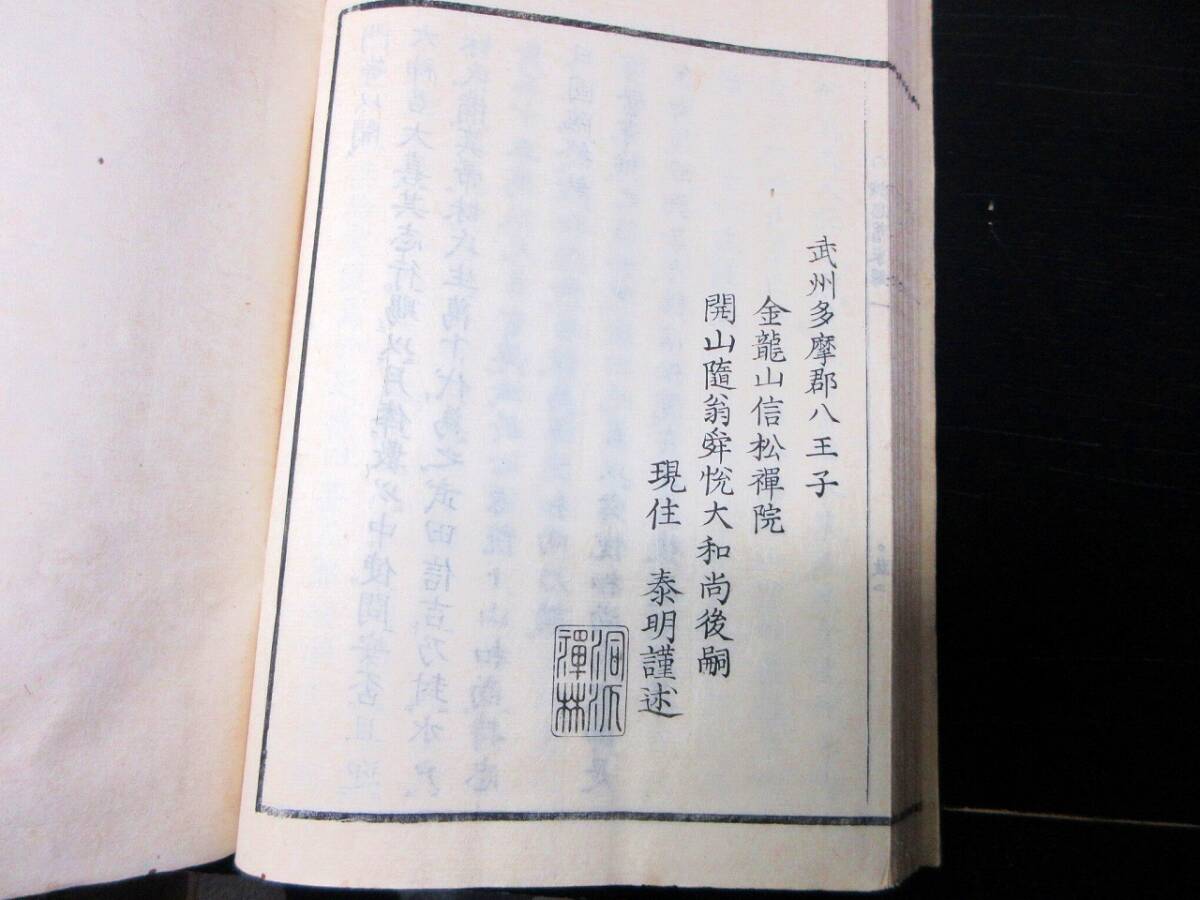 武州多摩郡八王子
金龍山信松禪院
開山隨翁舜悦大和尚後嗣
現住 泰明謹述
洞沠
禪林